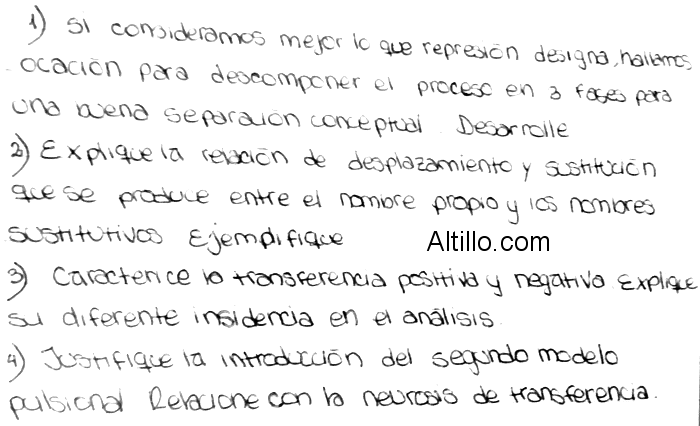 1) Si consideramos mejor lo que represión designa, hallamos
ocación para descomponer el proceso en 3 fases para
una buena separación conceptual. Desarrolle
2) Explique la relación de desplazamiento y sustitución
que se produce entre el nombre propio y los nombres
sustitutivos Ejemplifique
Altillo.com
3) Caracterice la transferencia positiva y negativa Explique
su diferente insidencia en el análisis.
4) Justifique la introducción del segundo modelo
pulsional Relacione con la neurosis de transferencia.